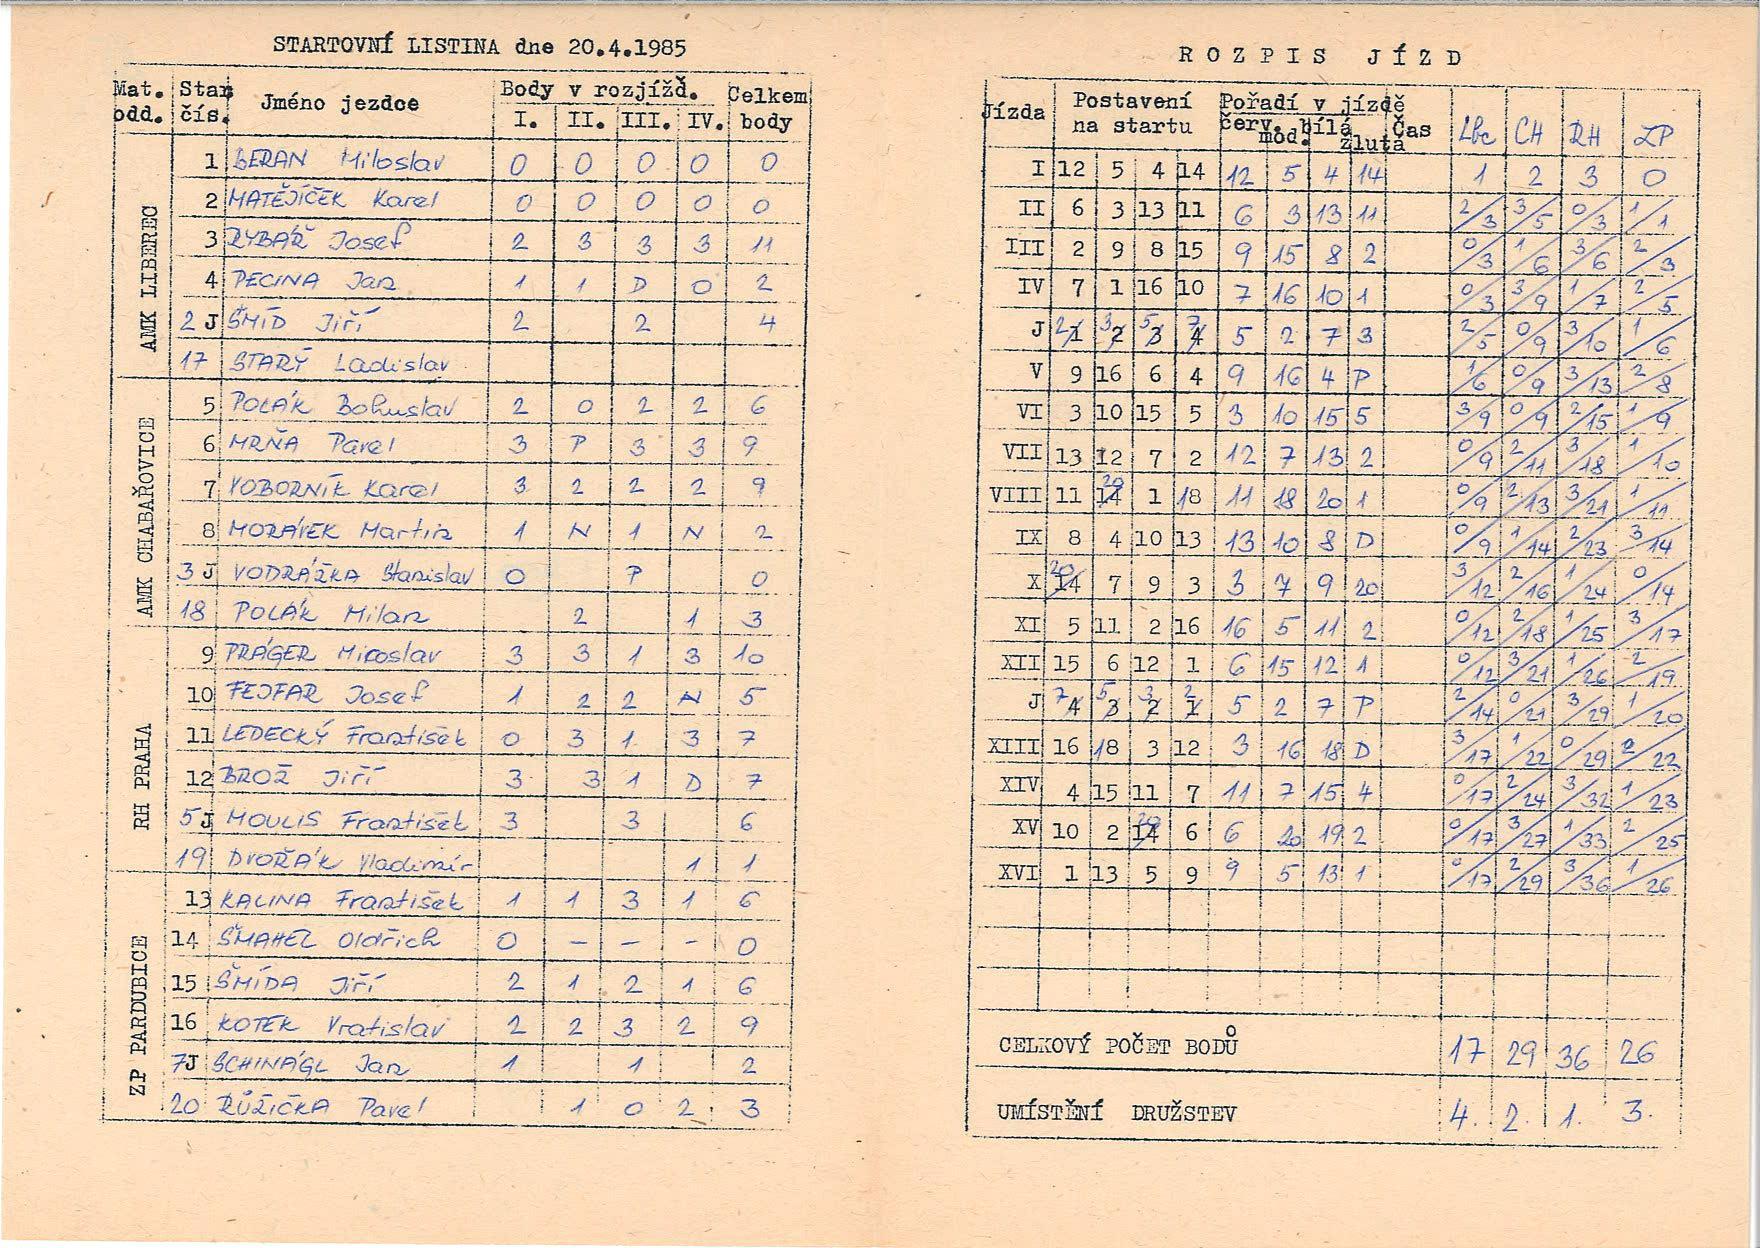 STARTOVNÍ LISTINA dne 20.4.1985
Mat. odd. Star. čís. Jméno jezdce Body v rozjížď. Celkem body
I. II. III. IV.
AMK LIBEREC
1 BERAN Miloslav 0 0 0 0 0
2 MATĚJÍČEK Karel 0 0 0 0 0
3 RYBÁŘ Josef 2 3 3 3 11
4 PECINA Jan 1 1 D 0 2
2 J ŠMÍD Jiří 2 2 4
17 STARÝ Ladislav
AMK CHABAŘOVICE
5 POLÁK Bohuslav 2 0 2 2 6
6 MRŇA Pavel 3 P 3 3 9
7 VOBORNÍK Karel 3 2 2 2 9
8 MORÁVEK Martin 1 N 1 N 2
3 J VODRÁŽKA Stanislav 0 P 0
18 POLÁK Milan 2 1 3
RH PRAHA
9 PRÁGER Miroslav 3 3 1 3 10
10 FEJFAR Josef 1 2 2 N 5
11 LEDECKÝ František 0 3 1 3 7
12 BROŽ Jiří 3 3 1 D 7
5 J MOULIS František 3 3 6
19 DVOŘÁK Vladimír 1 1
ZP PARDUBICE
13 KALINA František 1 1 3 1 6
14 ŠMAHEL Oldřich 0 – – – 0
15 ŠMÍDA Jiří 2 1 2 1 6
16 KOTEK Vratislav 2 2 3 2 9
7J SCHINÁGL Jan 1 1 2
20 RŮŽIČKA Pavel 1 0 2 3
ROZPIS JÍZD
Jízda Postavení na startu Pořadí v jízdě Čas Lbc CH RH ZP
červ. mod. bílá žlutá
I 12 5 4 14 12 5 4 14 1 2 3 0
II 6 3 13 11 6 3 13 11 2/3 3/5 0/3 1/1
III 2 9 8 15 9 15 8 2 0/3 1/6 3/6 2/3
IV 7 1 16 10 7 16 10 1 0/3 3/9 1/7 2/5
J 2 1 3 2 5 3 7 4 5 2 7 3 2/5 0/9 3/10 1/6
V 9 16 6 4 9 16 4 P 1/6 0/9 3/13 2/8
VI 3 10 15 5 3 10 15 5 3/9 0/9 2/15 1/9
VII 13 12 7 2 12 7 13 2 0/9 2/11 3/18 1/10
VIII 11 20 14 1 18 11 18 20 1 0/9 2/13 3/21 1/11
IX 8 4 10 13 13 10 8 D 0/9 1/14 2/23 3/14
X 20 14 7 9 3 3 7 9 20 3/12 2/16 1/24 0/14
XI 5 11 2 16 16 5 11 2 0/12 2/18 1/25 3/17
XII 15 6 12 1 6 15 12 1 0/12 3/21 1/26 2/19
J 7 4 5 3 3 2 2 1 5 2 7 P 2/14 0/21 3/29 1/20
XIII 16 18 3 12 3 16 18 D 3/17 1/22 0/29 2/22
XIV 4 15 11 7 11 7 15 4 0/17 2/24 3/32 1/23
XV 10 2 20 14 6 6 20 19 2 0/17 3/27 1/33 2/25
XVI 1 13 5 9 9 5 13 1 0/17 2/29 3/36 1/26
CELKOVÝ POČET BODŮ 17 29 36 26
UMÍSTĚNÍ DRUŽSTEV 4. 2. 1. 3.